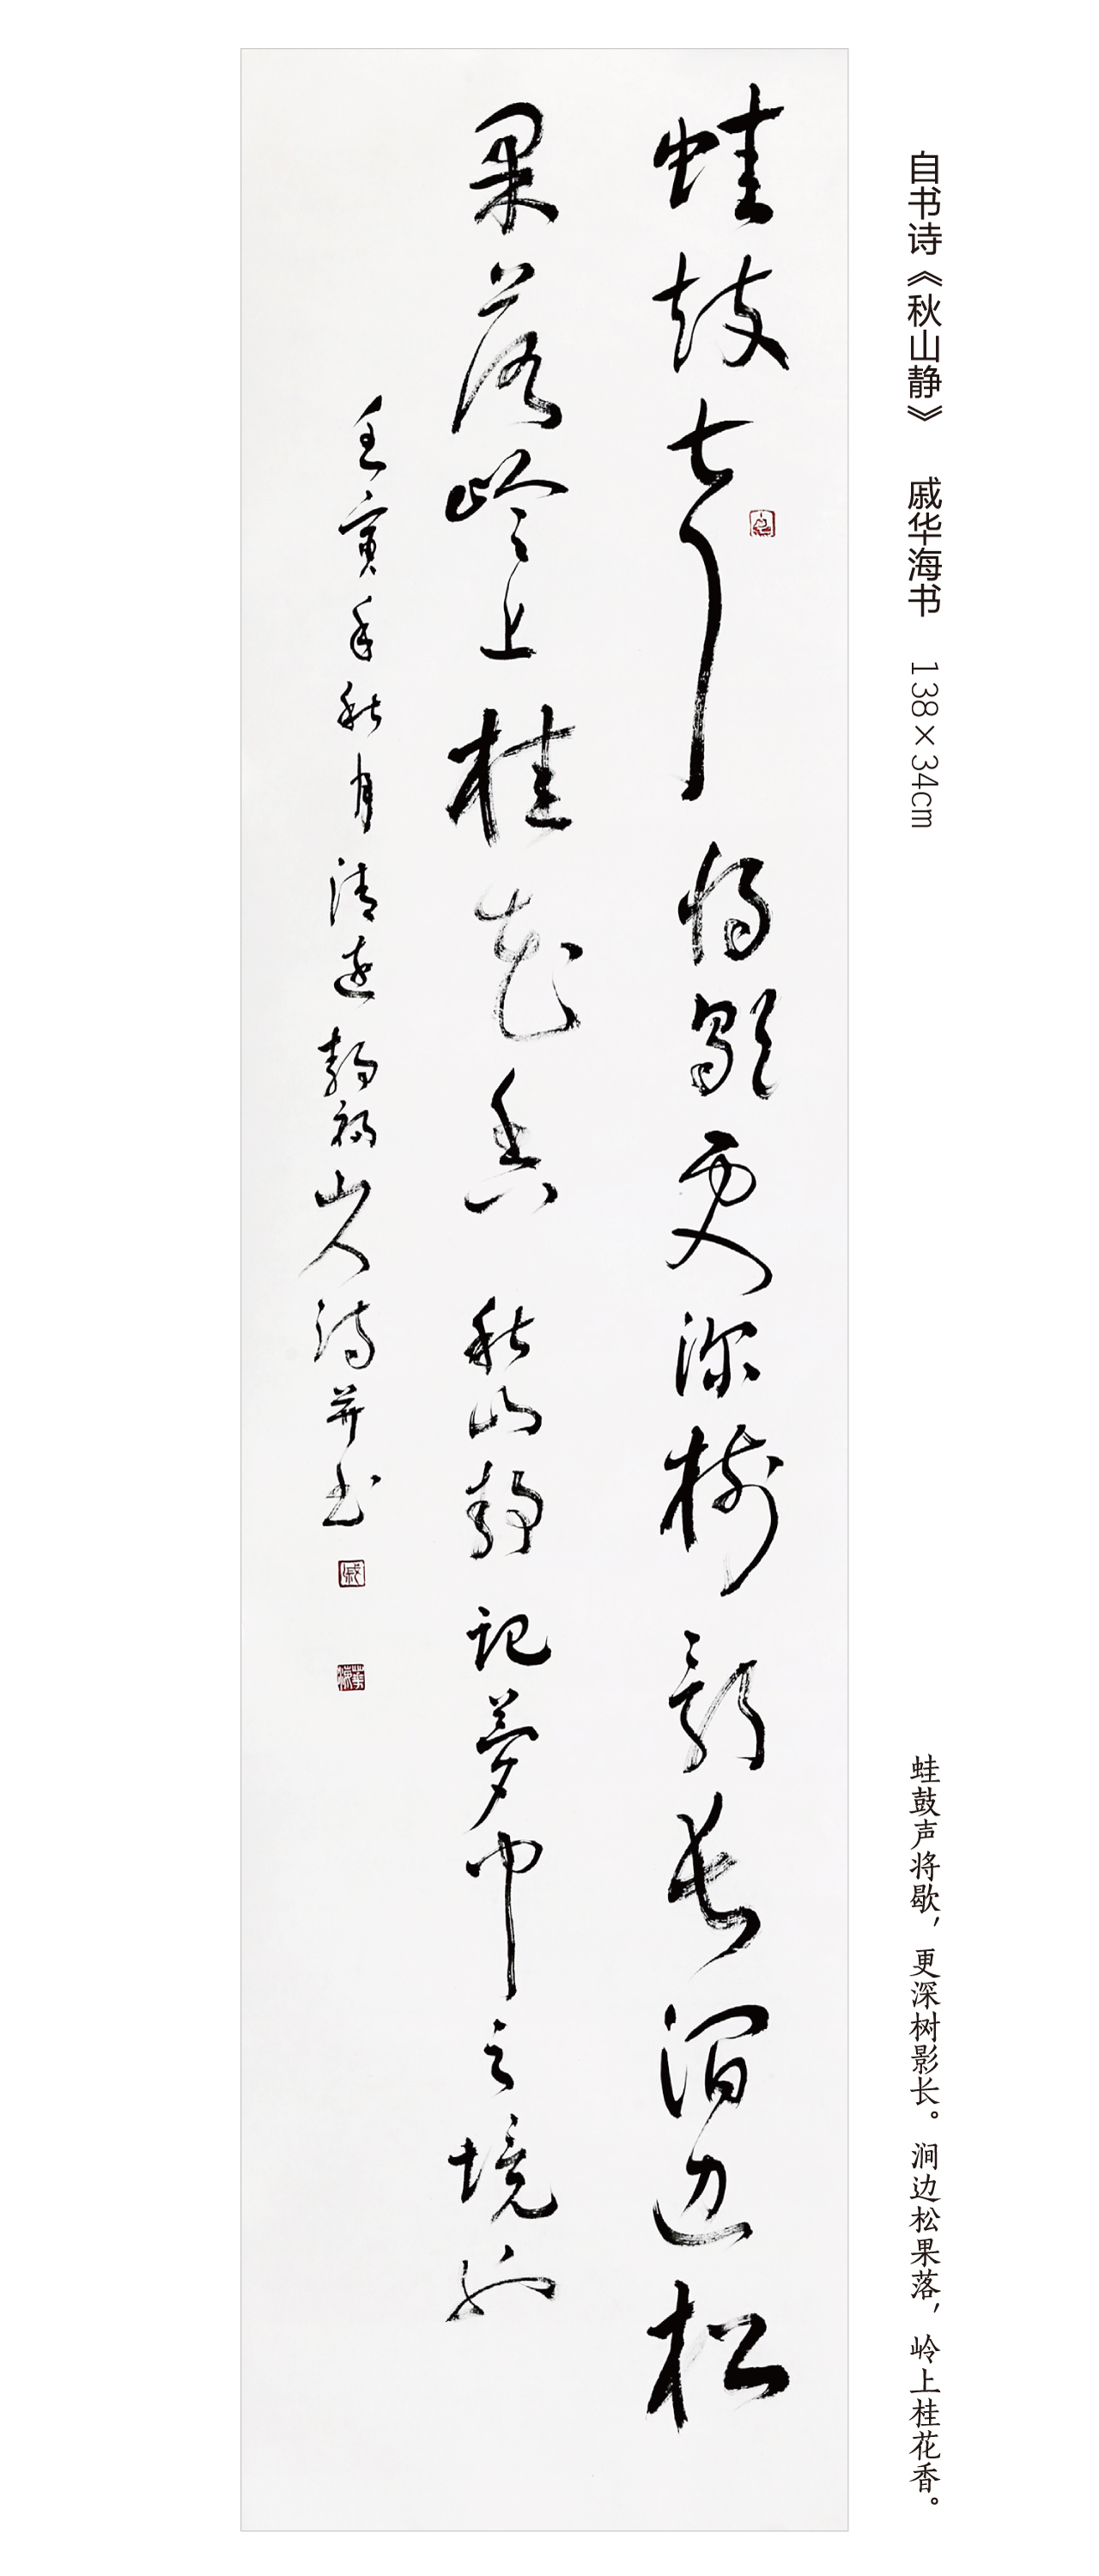 自书诗《秋山静》 戚华海书 138×34cm
蛙鼓声将歇，更深树影长。涧边松果落，岭上桂花香。
蛙鼓声将歇更深树影长涧边松
果落岭上桂花香 秋山静 记梦中之境也
壬寅年秋月清远静福山人诗并书
戚
华海